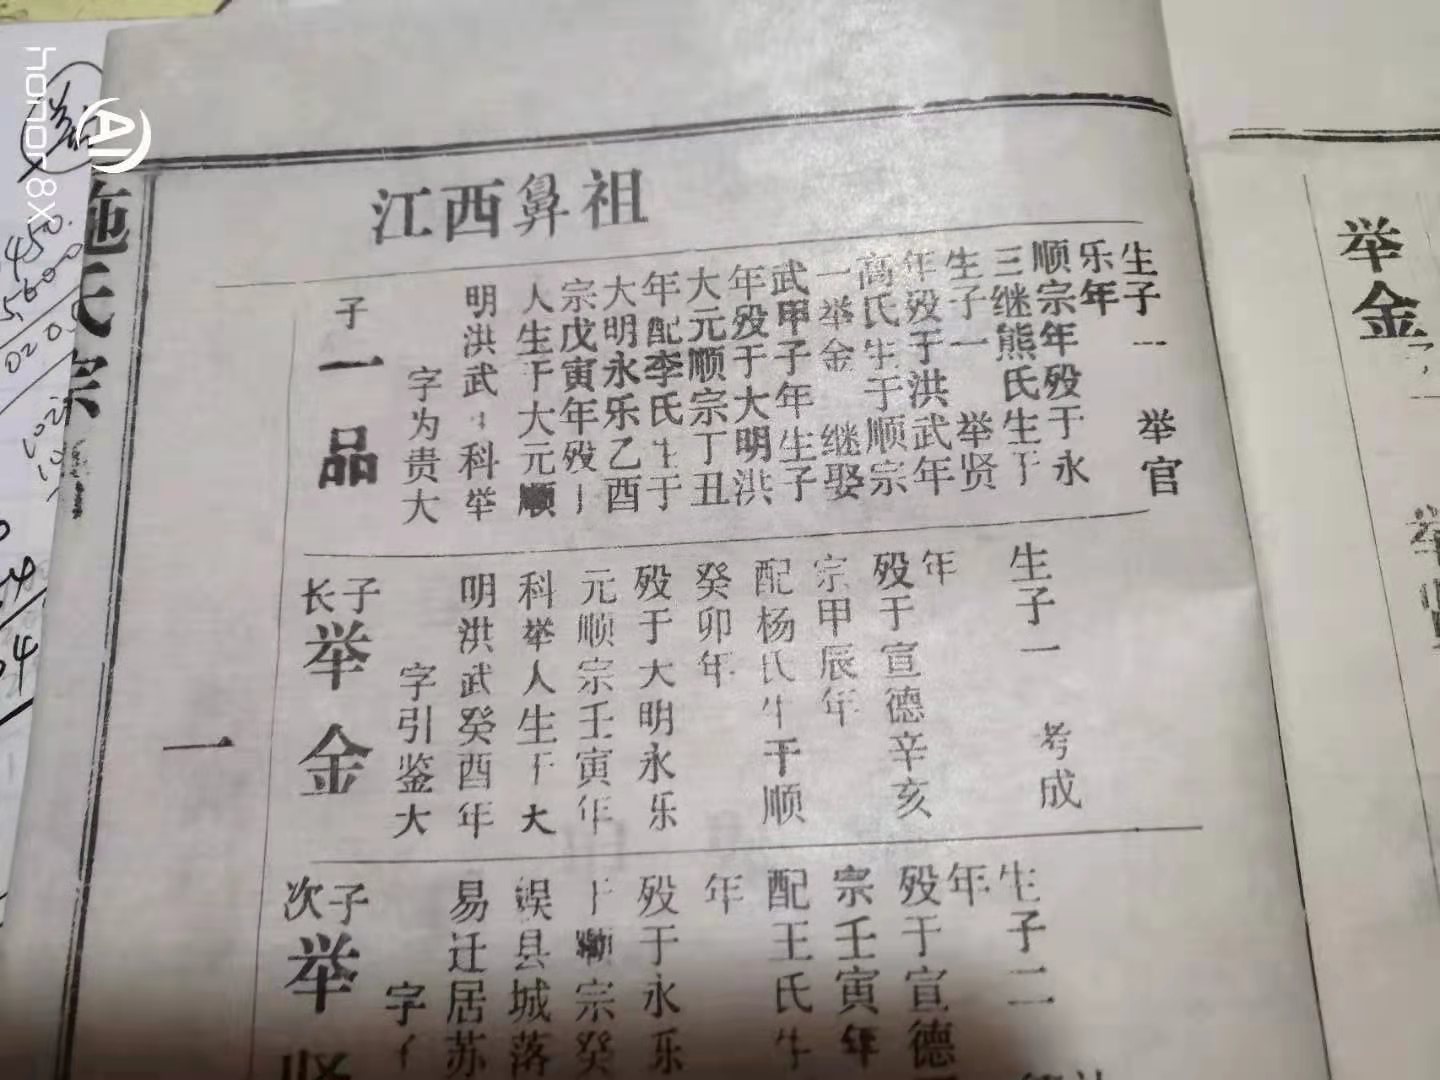 江西鼻祖
施氏宗
一
子一品
字为贵大
明洪武 科举
人生于大元顺
宗戊寅年殁于
大明永乐乙酉
年配李氏生于
大元顺宗丁丑
年殁于大明洪
武甲子年生子
一举金 继娶
高氏生于顺宗
年殁于洪武年
生子一 举贤
三继熊氏生于
顺宗年殁于永
乐年
生子一 举官
长子举金
字引鉴大
明洪武癸酉年
科举人生于大
元顺宗壬寅年
殁于大明永乐
癸卯年
配杨氏生于顺
宗甲辰年
殁于宣德辛亥
年
生子一 考成
次子举贤
字
易迁居苏
娱县城落
于顺宗癸
殁于永乐
年
配王氏生
宗壬寅年
殁于宣德
年
生子二
举金
honor 8X
AI
5600
020